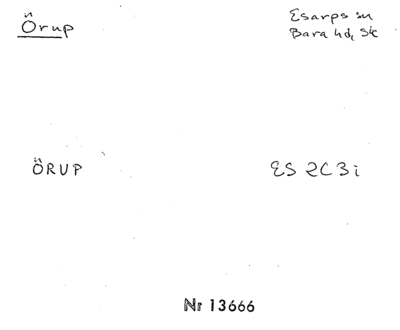 Örup
Esarps sn
Bara hd, Sk
ÖRUP
ES 2C3i
Nr 13666